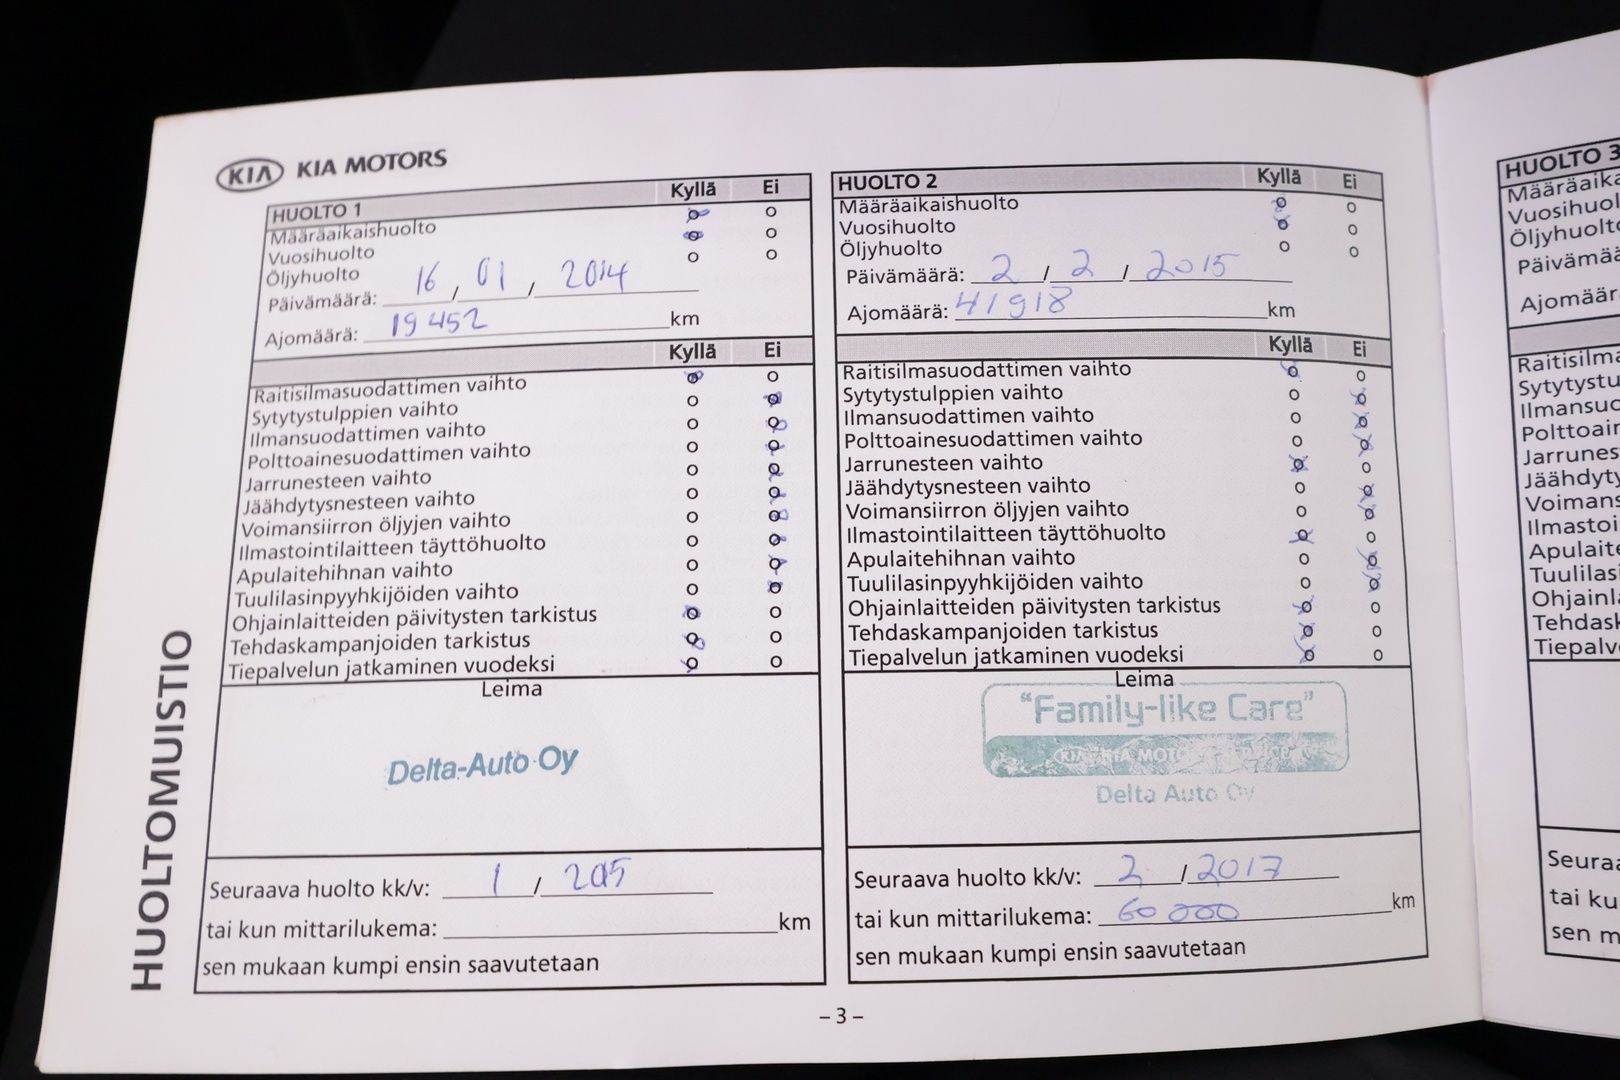 KIA KIA MOTORS
HUOLTOMUISTIO
HUOLTO 1 Kyllä Ei
Määräaikaishuolto o o
Vuosihuolto o o
Öljyhuolto o o
Päivämäärä: 16 / 01 / 2014
Ajomäärä: 19 452 km
Kyllä Ei
Raitisilmasuodattimen vaihto o o
Sytytystulppien vaihto o o
Ilmansuodattimen vaihto o o
Polttoainesuodattimen vaihto o o
Jarrunesteen vaihto o o
Jäähdytysnesteen vaihto o o
Voimansiirron öljyjen vaihto o o
Ilmastointilaitteen täyttöhuolto o o
Apulaitehihnan vaihto o o
Tuulilasinpyyhkijöiden vaihto o o
Ohjainlaitteiden päivitysten tarkistus o o
Tehdaskampanjoiden tarkistus o o
Tiepalvelun jatkaminen vuodeksi o o
Leima
Delta-Auto Oy
Seuraava huolto kk/v: 1 / 2015
tai kun mittarilukema: km
sen mukaan kumpi ensin saavutetaan
HUOLTO 2 Kyllä Ei
Määräaikaishuolto o o
Vuosihuolto o o
Öljyhuolto o o
Päivämäärä: 2 / 2 / 2015
Ajomäärä: 41918 km
Kyllä Ei
Raitisilmasuodattimen vaihto o o
Sytytystulppien vaihto o o
Ilmansuodattimen vaihto o o
Polttoainesuodattimen vaihto o o
Jarrunesteen vaihto o o
Jäähdytysnesteen vaihto o o
Voimansiirron öljyjen vaihto o o
Ilmastointilaitteen täyttöhuolto o o
Apulaitehihnan vaihto o o
Tuulilasinpyyhkijöiden vaihto o o
Ohjainlaitteiden päivitysten tarkistus o o
Tehdaskampanjoiden tarkistus o o
Tiepalvelun jatkaminen vuodeksi o o
Leima
"Family-like Care"
KIA KIA MOTORS
Delta Auto Oy
Seuraava huolto kk/v: 2 / 2017
tai kun mittarilukema: 60 000 km
sen mukaan kumpi ensin saavutetaan
– 3 –
HUOLTO 3
Määräaika
Vuosihuol
Öljyhuolto
Päivämää
Ajomäär
Raitisilma
Sytytystu
Ilmansuo
Polttoain
Jarrunes
Jäähdyty
Voimans
Ilmastoi
Apulaite
Tuulilasi
Ohjainla
Tehdask
Tiepalv
Seuraa
tai ku
sen m